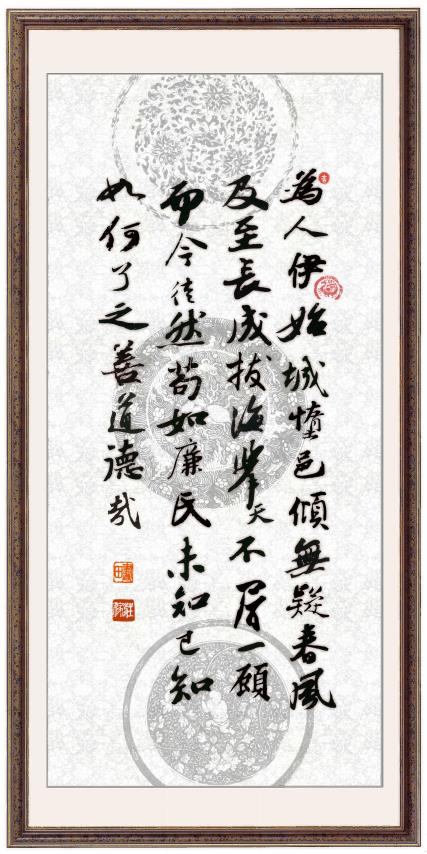 為人伊始城惰邑傾無疑春風
及至長成拔海舉天不屑一顧
而今徒然苟如廉民未知已知
如何了之善道德哉